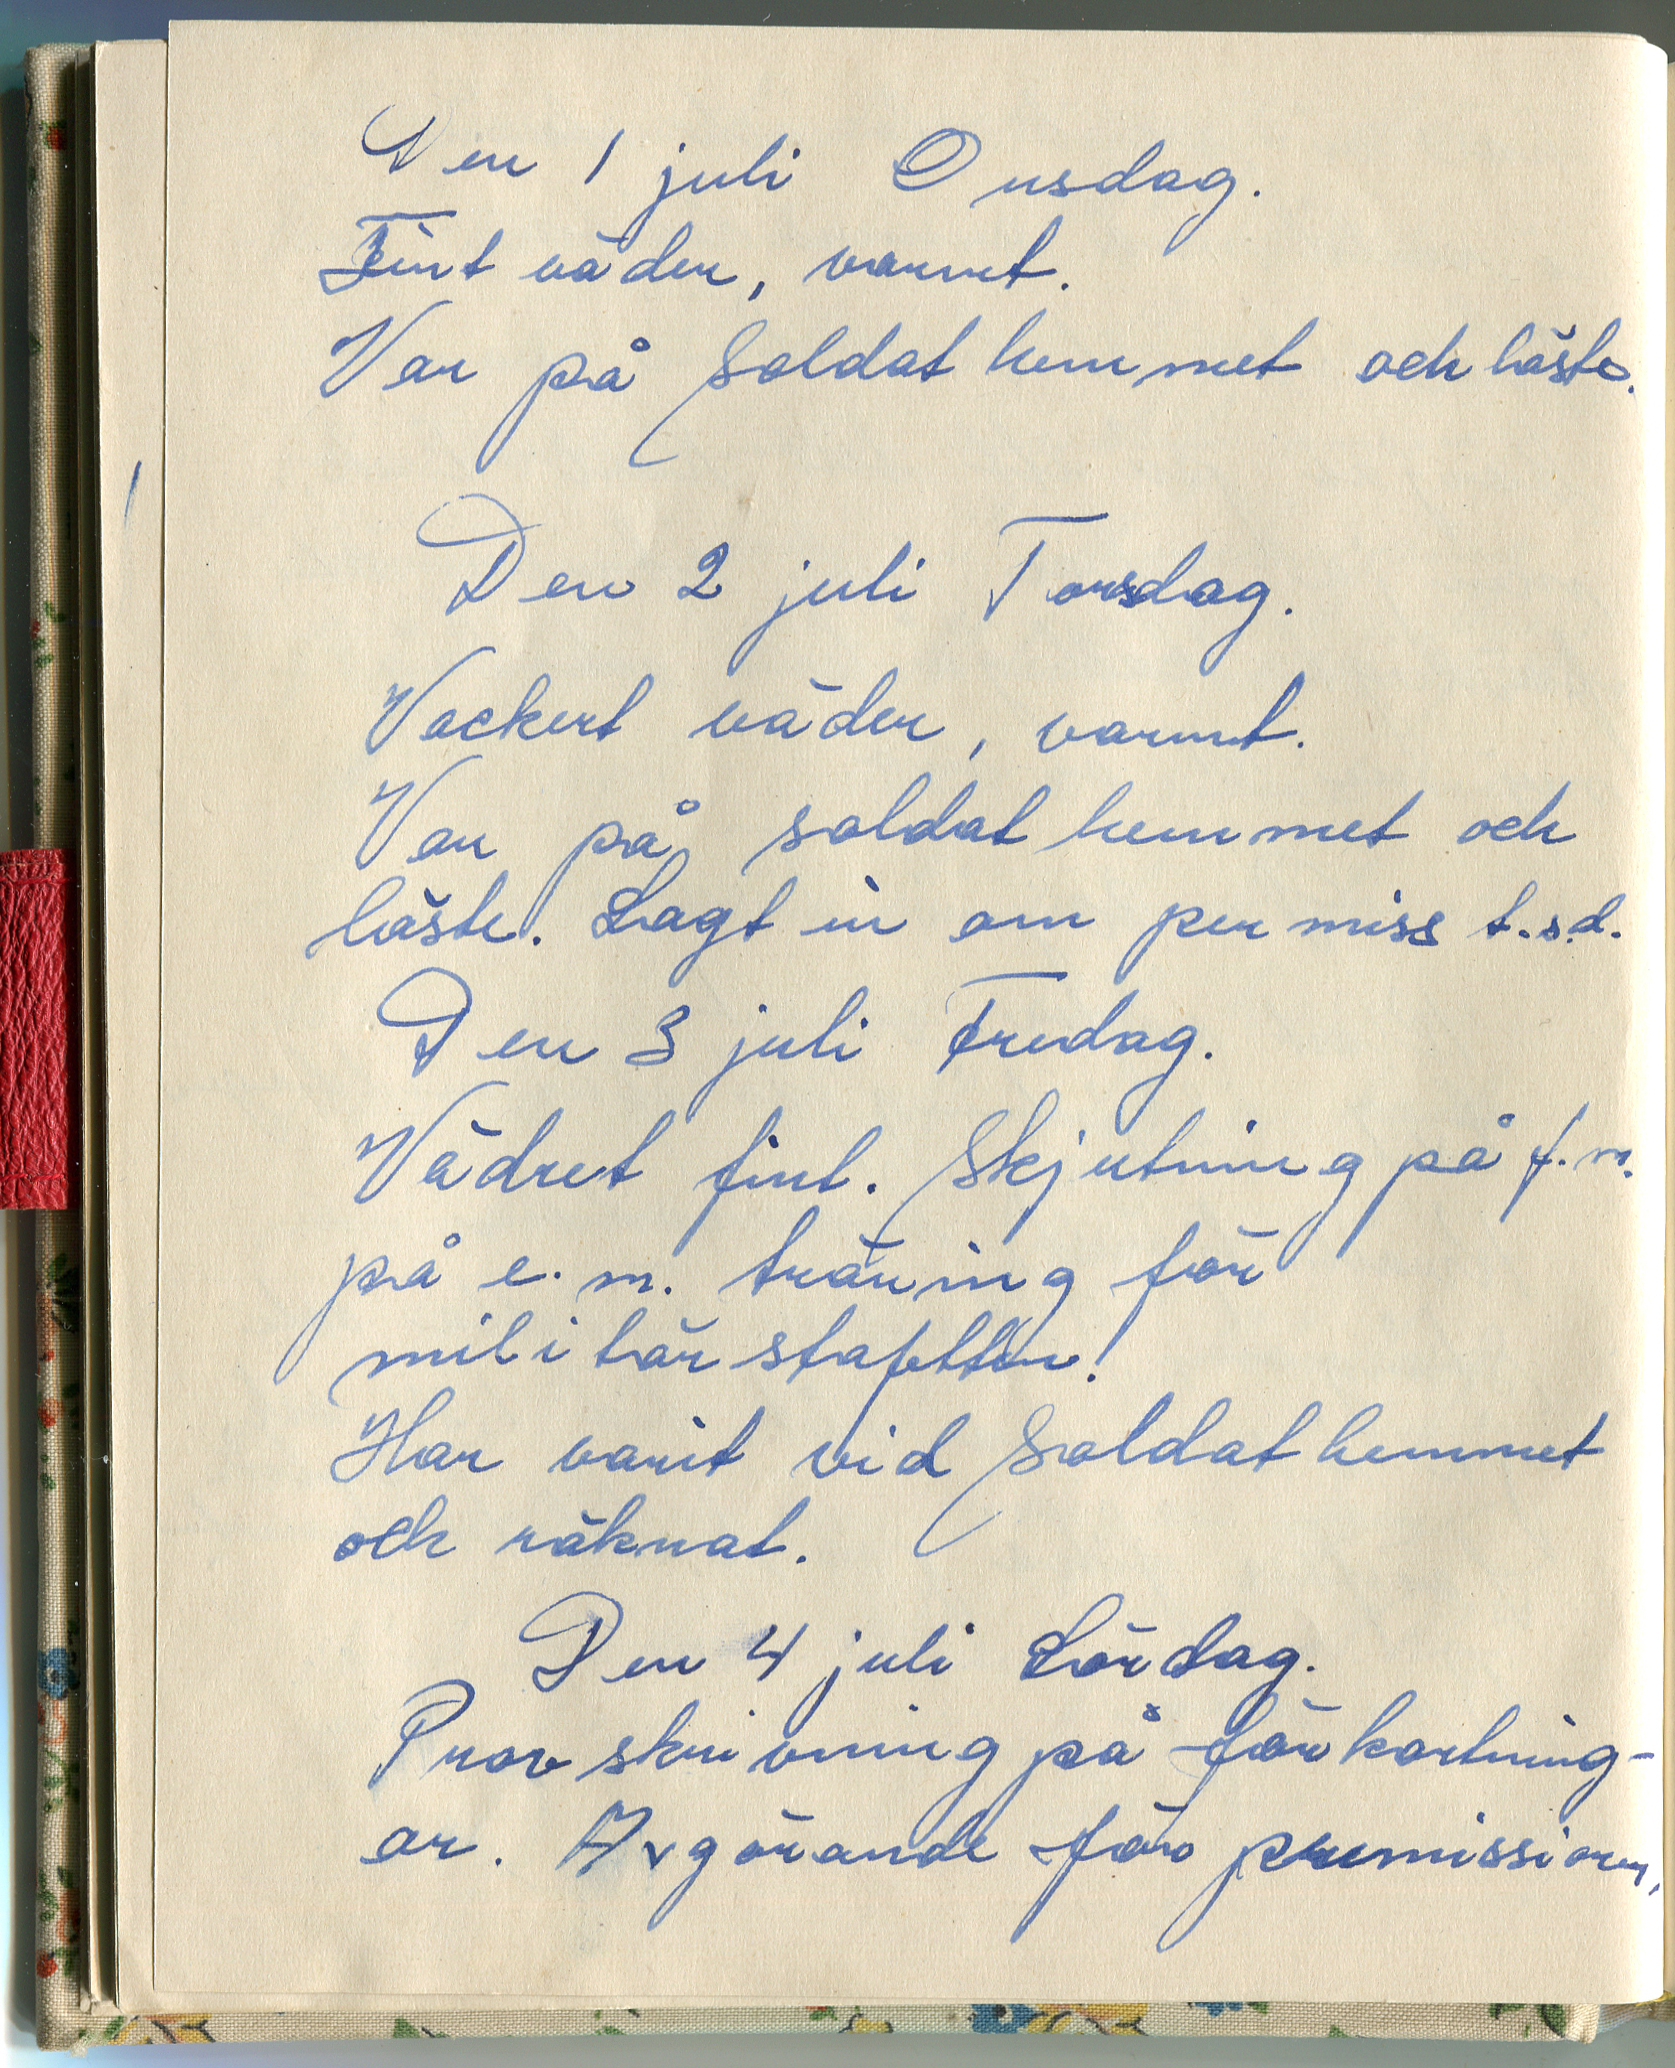 Den 1 juli Onsdag.
Fint väder, varmt.
Var på Soldathemmet och läste.
Den 2 juli Torsdag.
Vackert väder, varmt.
Var på soldathemmet och
läste. Lagt in om permiss t.s.d.
Den 3 juli Fredag.
Vädret fint. Skjutning på f.m.
på e.m. träning för
militärstafetten!
Har varit vid Soldathemmet
och räknat.
Den 4 juli Lördag.
Provskrivning på förkortning-
ar. Avgörande för permissionen,